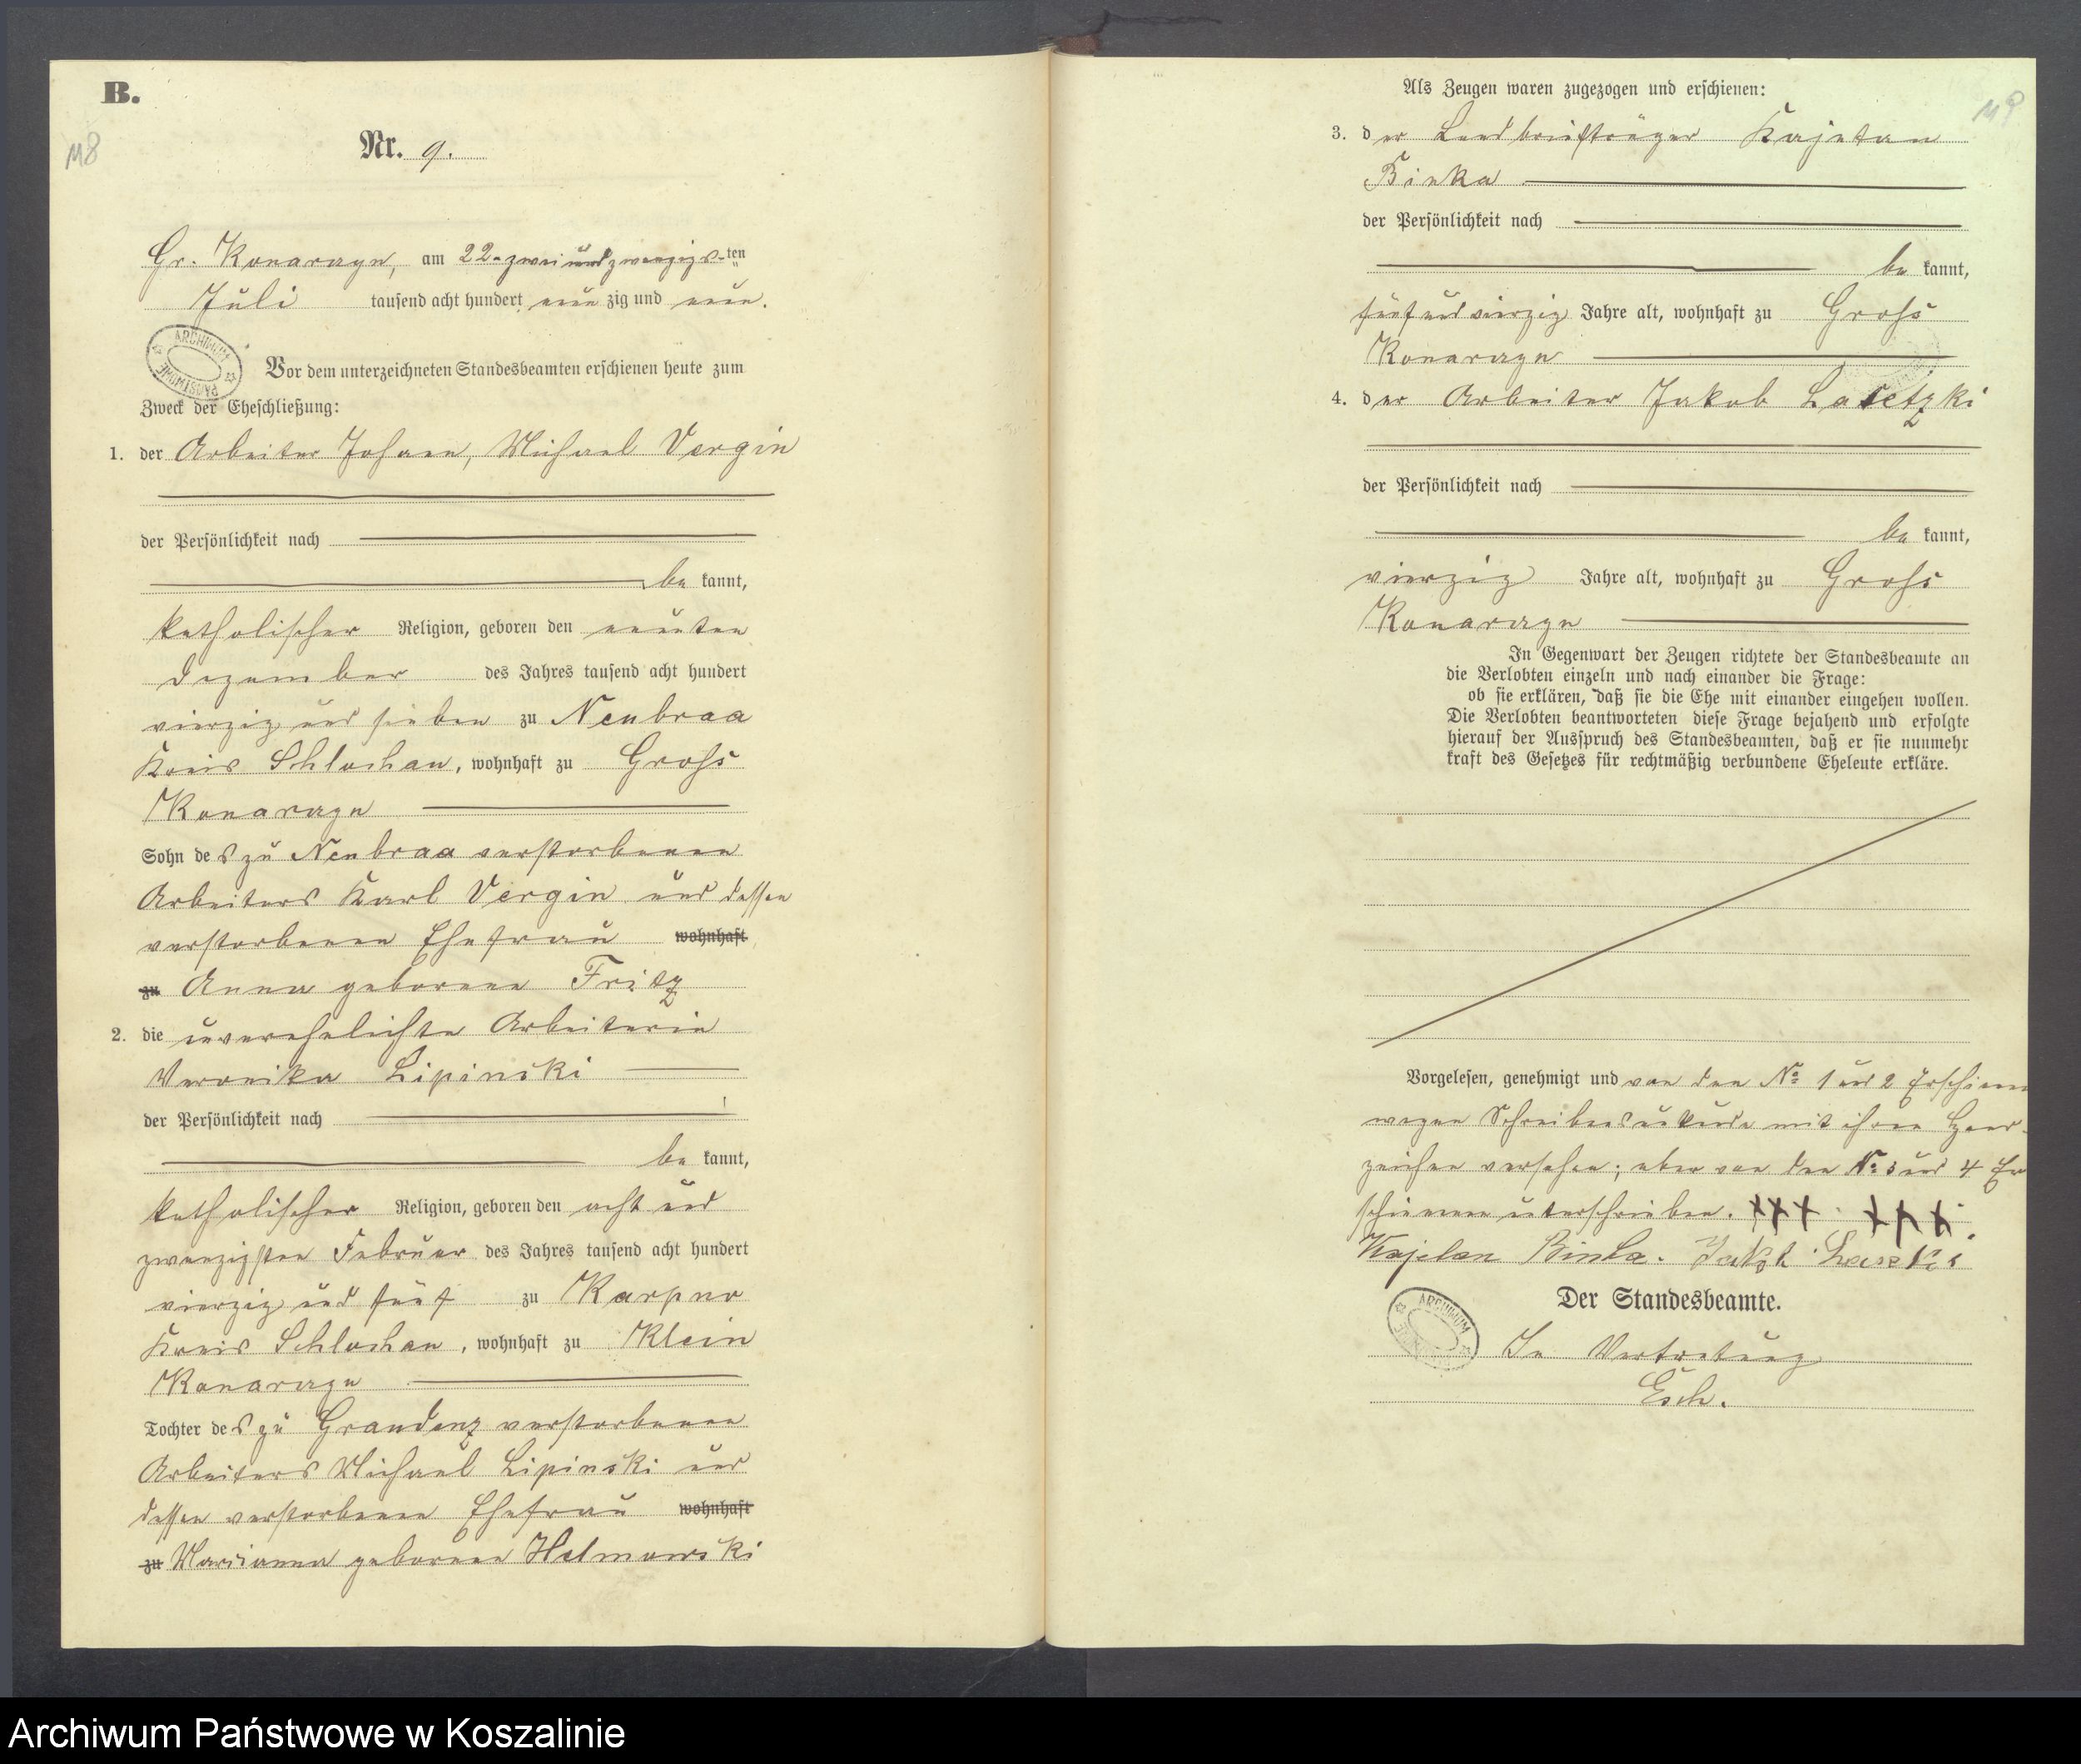 B.
118
Nr. 9.
Gr. Konarzyn, am 22. zweiundzwanzigs-ten
Juli tausend acht hundert neun zig und neun.
ARCHIWUM PAŃSTWOWE
Vor dem unterzeichneten Standesbeamten erschienen heute zum
Zweck der Eheschließung:
1. der Arbeiter Johann, Michael Vergin
der Persönlichkeit nach
be kannt,
katholischer Religion, geboren den neunten
Dezember des Jahres tausend acht hundert
vierzig und sieben zu Neubraa
Kreis Schlochau, wohnhaft zu Groß
Konarzyn
Sohn des zu Neubraa verstorbenen
Arbeiters Karl Vergin und dessen
verstorbenen Ehefrau wohnhaft
zu Anna geborenen Fritz
2. die unverehelichte Arbeiterin
Veronika Lipinski
der Persönlichkeit nach
be kannt,
katholischer Religion, geboren den acht und
zwanzigsten Februar des Jahres tausend acht hundert
vierzig und fünf zu Karpno
Kreis Schlochau, wohnhaft zu Klein
Konarzyn
Tochter des zu Graudenz verstorbenen
Arbeiters Michael Lipinski und
dessen verstorbenen Ehefrau wohnhaft
zu Marianna geborenen
Als Zeugen waren zugezogen und erschienen:
119
3. der Landbriefträger Kajetan
Binka
der Persönlichkeit nach
be kannt,
fünfundvierzig Jahre alt, wohnhaft zu Groß
Konarzyn
4. der Arbeiter Jakob
der Persönlichkeit nach
be kannt,
vierzig Jahre alt, wohnhaft zu Groß
Konarzyn
In Gegenwart der Zeugen richtete der Standesbeamte an
die Verlobten einzeln und nach einander die Frage:
ob sie erklären, daß sie die Ehe mit einander eingehen wollen.
Die Verlobten beantworteten diese Frage bejahend und erfolgte
hierauf der Ausspruch des Standesbeamten, daß er sie nunmehr
kraft des Gesetzes für rechtmäßig verbundene Eheleute erkläre.
Vorgelesen, genehmigt und von den No 1 und 2 Erschienen
wegen Schreibensunkunde mit ihren Hand-
zeichen versehen; aber von den No 3 und 4 Er
schienenen unterschrieben. +++. +++.
Kajetan Binka. Jakob
Der Standesbeamte.
ARCHIWUM
In Vertretung
Esch.
Archiwum Państwowe w Koszalinie